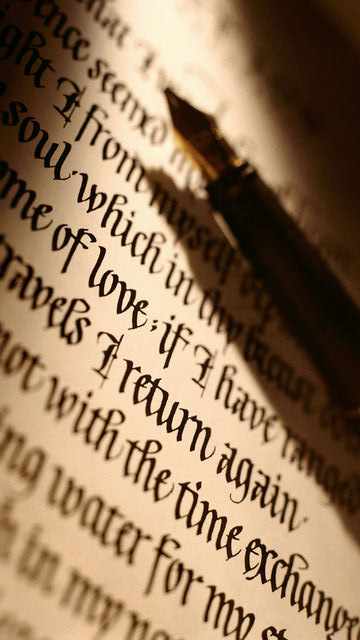 that I
ence seemed
ght I from myself dep
soul, which in thy breast
me of love; if I have ranged
ravels I return again
not with the time exchang
ng water for my st
in my na